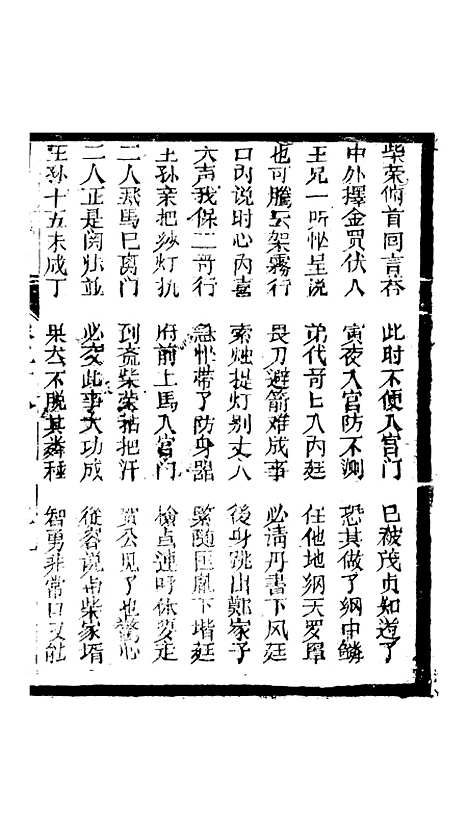 柴荣俯首回言答 此时不便入官门 已被茂贞知道了
中外擇金買伏人 寅夜入官防不測 恐其做了綱中鱗
王兄一听忙呈说 弟代哥上入內廷 任他地綱天罗罩
也可騰云架霧行 畏刀避箭难成事 必請丹書下风廷
口內说时心內喜 索烛提灯别丈人 後身跳出鄭家子
大声我保二哥行 急忙帶了防身器 緊随匡胤下堦廷
王孙亲把纱灯执 府前上馬入官門 檢点連呼休要走
二人飛馬已离门 到底柴荣抽把汗 賈公见了也驚心
二人正是関怀並 必交此事大功成 從容说与柴家壻
王孙十五未成丁 果不脱其森種 智勇非常口又能